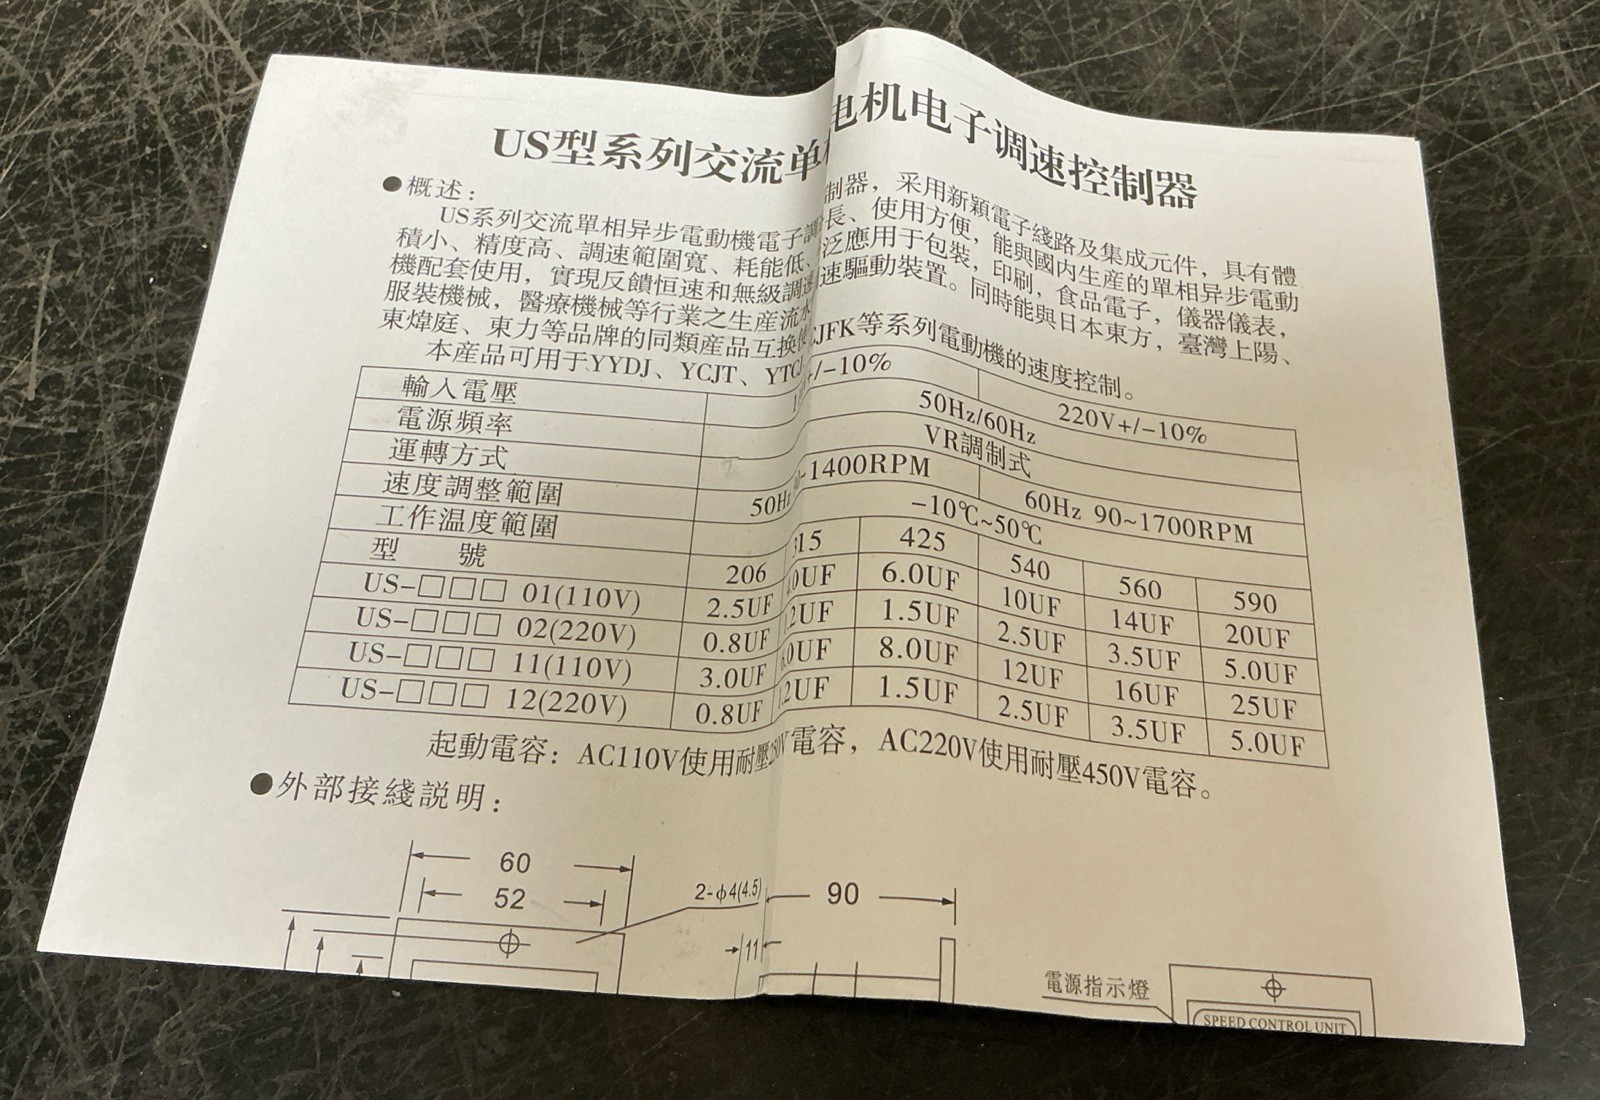 US型系列交流单 电机电子调速控制器
●概述：
US系列交流單相异步電動機電子調 制器，采用新颖電子綫路及集成元件，具有體
積小、精度高、調速範圍寬、耗能低、 長、使用方便，能與國内生産的單相异步電動
機配套使用，實現反饋恒速和無級調速 泛應用于包裝，印刷，食品電子，儀器儀表，
服裝機械，醫療機械等行業之生産流水 速驅動裝置。同時能與日本東方，臺灣上陽、
東煒庭、東力等品牌的同類産品互換使
本産品可用于YYDJ、YCJT、YTCJ JFK等系列電動機的速度控制。
輸入電壓 +/-10% 220V+/-10%
電源頻率 50Hz/60Hz
運轉方式 VR調制式
速度調整範圍 50Hz ~1400RPM 60Hz 90~1700RPM
工作温度範圍 -10℃~50℃
型 號 206 315 425 540 560 590
US-□□□ 01(110V) 2.5UF 0UF 6.0UF 10UF 14UF 20UF
US-□□□ 02(220V) 0.8UF 2UF 1.5UF 2.5UF 3.5UF 5.0UF
US-□□□ 11(110V) 3.0UF 0UF 8.0UF 12UF 16UF 25UF
US-□□□ 12(220V) 0.8UF 2UF 1.5UF 2.5UF 3.5UF 5.0UF
起動電容：AC110V使用耐壓250V電容，AC220V使用耐壓450V電容。
●外部接綫説明：
60
52
2-φ4(4.5)
90
11
電源指示燈
SPEED CONTROL UNIT